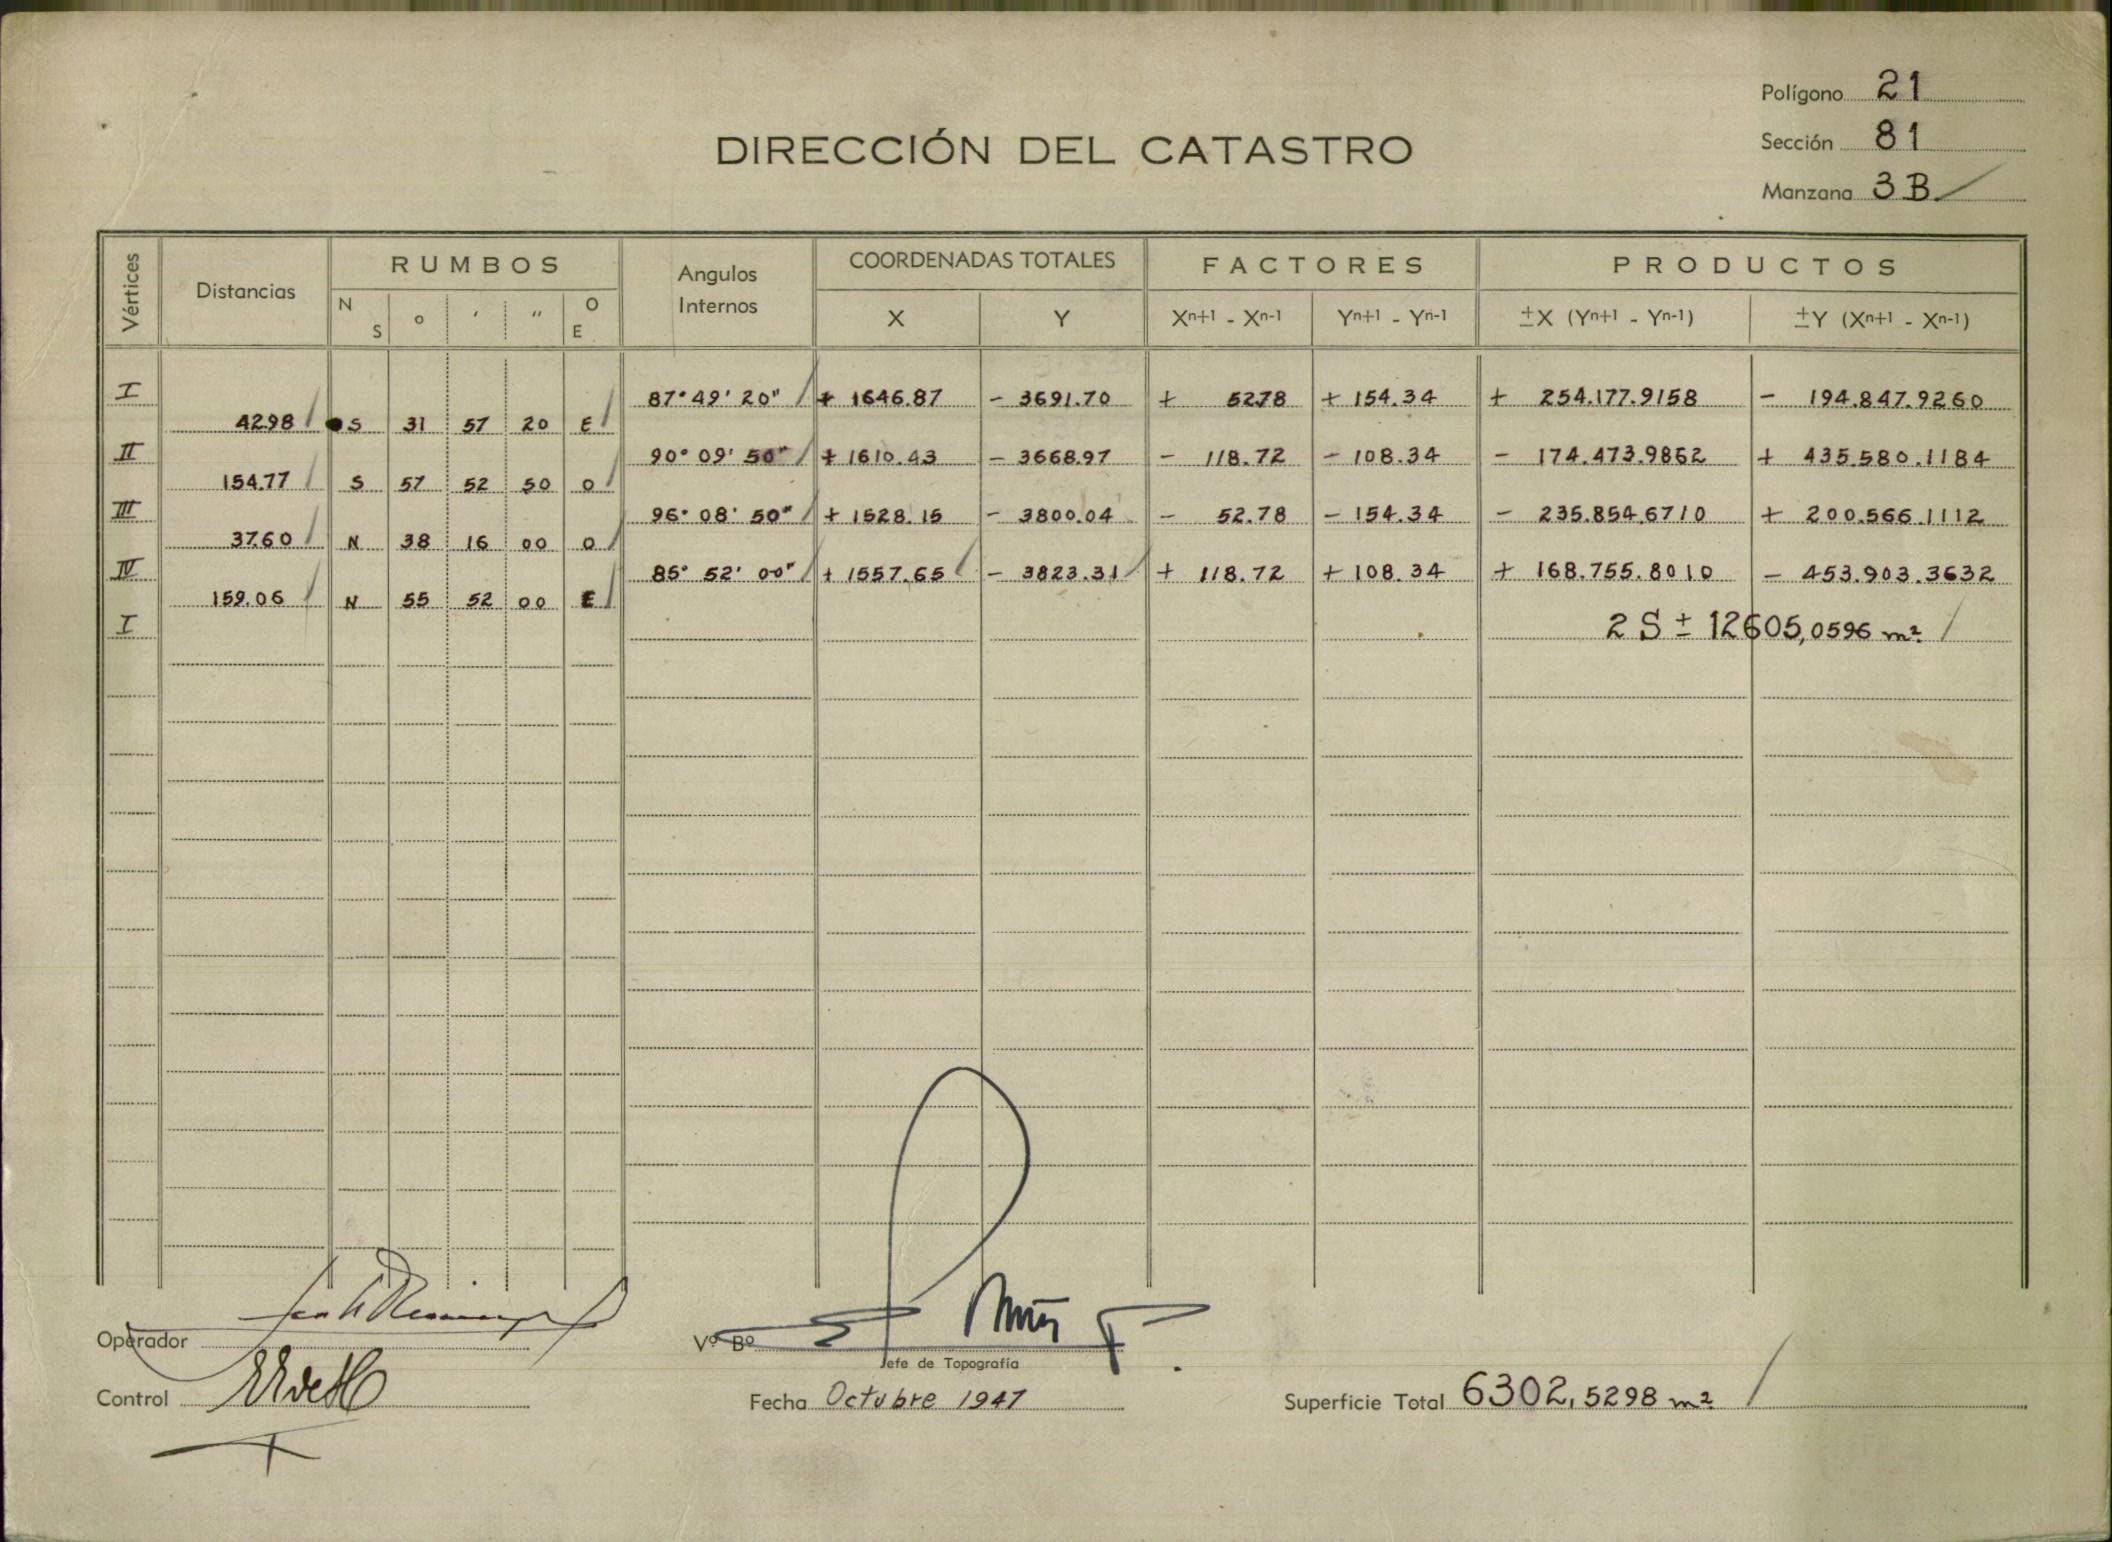 Polígono 21
DIRECCIÓN DEL CATASTRO
Sección 81
Manzana 3B
Vértices Distancias RUMBOS Angulos Internos COORDENADAS TOTALES FACTORES PRODUCTOS
N S o ′ ″ O E X Y Xn+1 - Xn-1 Yn+1 - Yn-1 ±X (Yn+1 - Yn-1) ±Y (Xn+1 - Xn-1)
I 87° 49' 20" + 1646.87 - 3691.70 + 52.78 + 154.34 + 254.177.9158 - 194.847.9260
42.98 S 31 57 20 E
II 90° 09' 50" + 1610.43 - 3668.97 - 118.72 - 108.34 - 174.473.9862 + 435.580.1184
154.77 S 57 52 50 O
III 96° 08' 50" + 1528.15 - 3800.04 - 52.78 - 154.34 - 235.854.6710 + 200.566.1112
37.60 N 38 16 00 O
IV 85° 52' 00" + 1557.65 - 3823.31 + 118.72 + 108.34 + 168.755.8010 - 453.903.3632
159.06 N 55 52 00 E
I 2 S ± 12605,0596 m²
Operador
Vº Bº
Jefe de Topografía
Control
Fecha Octubre 1947
Superficie Total 6302,5298 m²